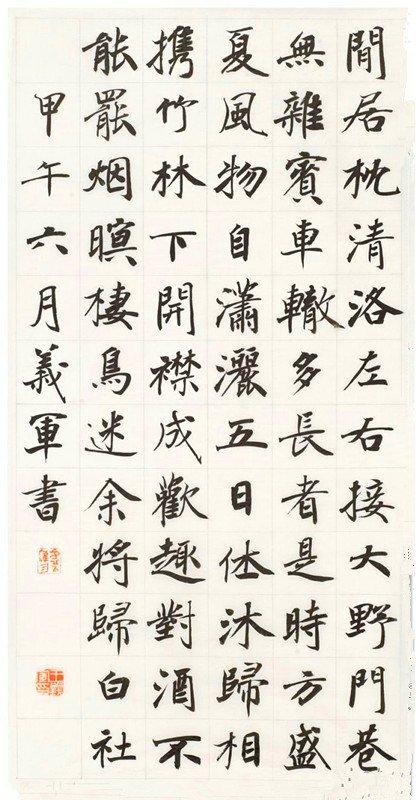 閒居枕清洛左右接大野門巷
無雜賓車轍多長者是時方盛
夏風物自瀟灑五日休沐歸相
攜竹林下開襟成歡趣對酒不
能罷烟暝棲鳥迷余將歸白社
甲午六月義軍書